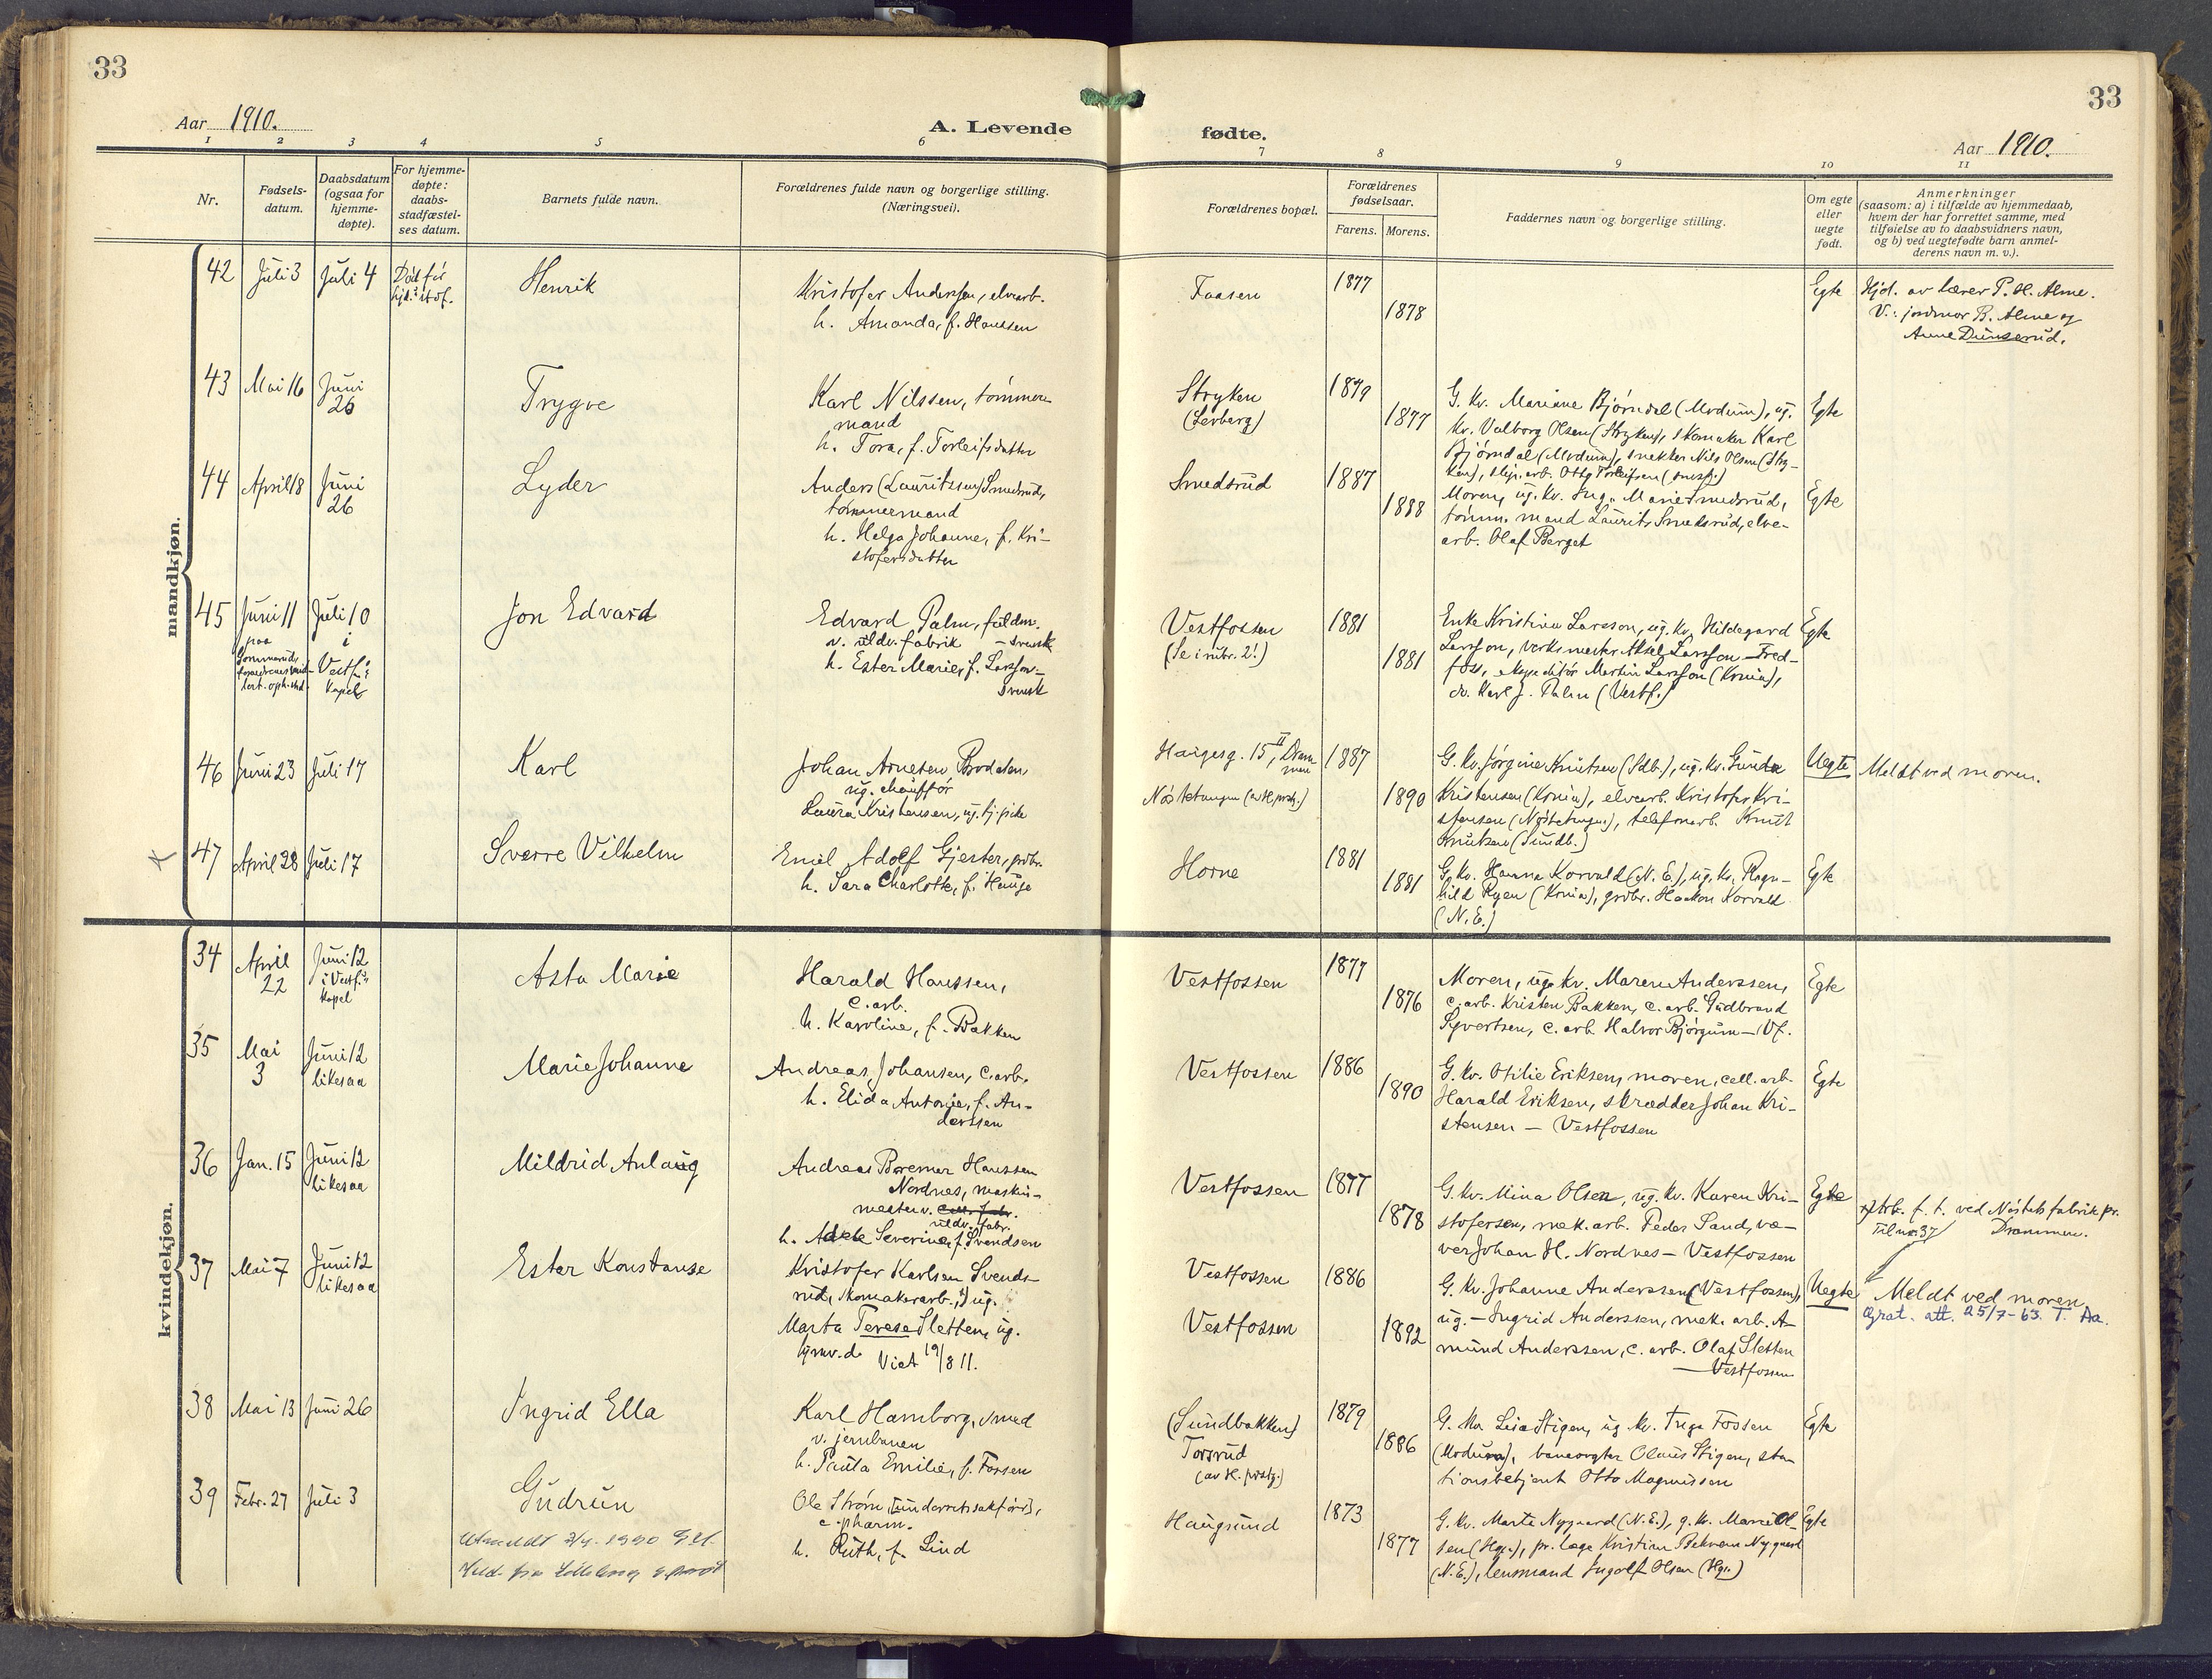 33
33
Aar 1910.
A. Levende
fødte.
Aar 1910.
1 2 3 4 5 6 7 8 9 10 11
Nr.
Fødsels-
datum.
Daabsdatum
(ogsaa for
hjemme-
døpte).
For hjemme-
døpte:
daabs-
stadfæstel-
ses datum.
Barnets fulde navn.
Forældrenes fulde navn og borgerlige stilling.
(Næringsvei).
Forældrenes bopæl.
Forældrenes
fødselsaar.
Farens. Morens.
Faddernes navn og borgerlige stilling.
Om egte
eller
uegte
født.
Anmerkninger
(saasom: a) i tilfælde av hjemmedaab,
hvem der har forrettet samme, med
tilføielse av to daabsvidners navn,
og b) ved uegtefødte barn anmel-
derens navn m. v.).
mandkjøn.
42 Juli 3 Juli 4
Død før
Henrik
Kristofer Anderssen, elvearb.
h. Amanda, f. Hanssen
Faasen
1877
1878
Egte
Hjd. av lærer P. H. Alme.
V.: jordmor B. Alme og
Anne Dunserud.
43 Mai 16 Juni
26
Trygve
Karl Nilssen, tømmer-
mand
h. Tora, f. Torleifsdatter
Stryken
(Løvberg)
1879
1877
G. kv. Mariane Bjørndal (Modum), ug.
kv. Valborg Olsen (Stryken), skomaker Karl
Bjørndal (Modum), snekker Nils Olsen (Stry-
ken), slip.arb. Otto Torleifsen
Egte
44 April 8 Juni
26
Lyder
Anders (Lauritssen) Smedsrud,
tømmermand
h. Helga Johanne, f. Kri-
stofersdatter
Smedsrud
1887
1888
Moren, ug. kv. Inga Marie Smedsrud,
tømm. mand Laurits Smedsrud, elve-
arb. Olaf Berget
Egte
45 Juni 11 Juli 10
paa
i
Vestf.
kapel
Jon Edvard
Edvard Palm, fuldm.
v. uldv. fabrik – svensk
h. Ester Marie, f. Larsson –
svensk
Vestfossen
(Se i rubr. 2!)
1881
1881
Enke Kristina Larsson, ug. kv. Hildegard
Larsson, verksmester Aksel Larsson – Fred-
fos, ekspeditør Martin Larsson (Krnia),
do. Karl J. Palm (Vestf.)
Egte
46 Juni 23 Juli 17
Karl
Johan Arnesen Brodalen,
ug. chauffør
Laura Kristensen, ug. tj. pike
Haugesg. 15 II, Dram-
men
Nøstetangen
1887
1890
G. kv. Jørgine Knutsen (Sdb.), ug. kv. Gunda
Kristensen (Krnia), elvearb. Kristofer Kri-
stensen (Nøstetangen), telefonarb. Knut
Knutsen (Sundb.)
Uegte
Meldt ved moren.
47 April 28 Juli 17
Sverre Vilhelm
Emil Adolf Gjester, grdbr.
h. Sara Charlotte, f. Hauge
Horne
1881
1881
G. kv. Hanna Korvald (N. E.), ug. kv. Ragn-
hild Ryen (Krnia), grdbr. Haakon Korvald
(N. E.)
Egte
kvindekjøn.
34 April
22
Juni 12
i Vestf.s
kapel
Asta Marie
Harald Hanssen,
c. arb.
h. Karoline, f. Bakken
Vestfossen
1877
1876
Moren, ug. kv. Maren Anderssen,
c. arb. Kristen Bakken, c. arb. Gudbrand
Syvertsen, c. arb. Halvor Bjørgum – Vf.
Egte
35 Mai
3
Juni 12
likesaa
Marie Johanne
Andreas Johansen, c. arb.
h. Elida Antonie, f. An-
derssen
Vestfossen
1886
1890
G. kv. Otilie Eriksen, moren, cell. arb.
Harald Eriksen, skrædder Johan Kri-
stensen – Vestfossen
Egte
36 Jan. 15 Juni 12
likesaa
Mildrid Anlaug
Andreas Bremer Hanssen
Nordnes, maskin-
mester v. cell. fabr.
uldv. fabr.
h. Adele Severine, f. Svendsen
Vestfossen
1877
1878
G. kv. Mina Olsen, ug. kv. Karen Kri-
stofersen, mek. arb. Peder Sand, væ-
ver Johan H. Nordnes – Vestfossen
Egte
x) Arb. f. t. ved Nøsteds fabrik pr.
Til nr. 37 Drammen.
37 Mai 7 Juni 12
likesaa
Ester Konstanse
Kristofer Karlsen Svends-
rud, skomakerarb., x) ug.
Marta Terese Sletten, ug.
Viet 19/8 11.
Vestfossen
Vestfossen
1886
1892
G. kv. Johanne Anderssen (Vestfossen),
ug. – Ingrid Anderssen, mek. arb. A-
mund Anderssen, c. arb. Olaf Sletten
– Vestfossen
Uegte
Meldt ved moren
Grat. att. 25/7-63. T. Aa.
38 Mai 13 Juni 26
Ingrid Ella
Karl Hamborg, smed
v. jernbanen
h. Paula Emilie, f. Fossen
(Sundbakken)
Torsrud
1879
1886
G. kv. Lisa Stigen, ug. kv. Inga Fossen
(Modum), banevogter Olaus Stigen, sta-
tionsbetjent Otto Magnussen
Egte
39 Febr. 27 Juli 3
Gudrun
Utmeldt
Ole Strøm, [underretssakfører],
c. pharm.
h. Ruth, f. Lind
Haugsund
1873
1877
G. kv. Marte Nygaard (N. E.), g. kv. Marie Ol-
sen (Hgs.), pr. læge Kristian Bekvam Nygaard
(N. E.), lensmand Ingolf Olsen (Hgs.)
Egte